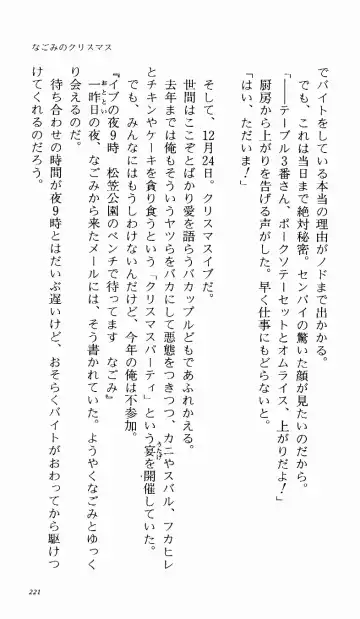 なごみのクリスマス
でバイトをしている本当の理由がノドまで出かかる。
でも、これは当日まで絶対秘密。センパイの驚いた顔が見たいのだから。
「――テーブル3番さん、ポークソテーセットとオムライス、上がりだよ！」
厨房から上がりを告げる声がした。早く仕事にもどらないと。
「はい、ただいま！」
そして、12月24日。クリスマスイブだ。
世間はここぞとばかり愛を語らうバカップルどもであふれかえる。
去年までは俺もそういうヤツらをバカにして悪態をつきつつ、カニやスバル、フカヒレ
とチキンやケーキを貪り食うという「クリスマスパーティ」という宴を開催していた。
うたげ
でも、みんなにはもうしわけないんだけど、今年の俺は不参加。
『イブの夜9時、松笠公園のベンチで待ってます　なごみ』
一昨日の夜、なごみから来たメールには、そう書かれていた。ようやくなごみとゆっく
おととい
り会えるのだ。
待ち合わせの時間が夜9時とはだいぶ遅いけど、おそらくバイトがおわってから駆けつ
けてくれるのだろう。
221